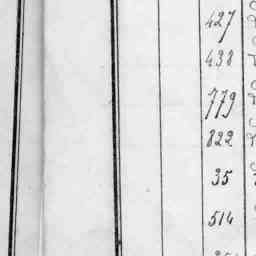 427
438
779
822
35
514